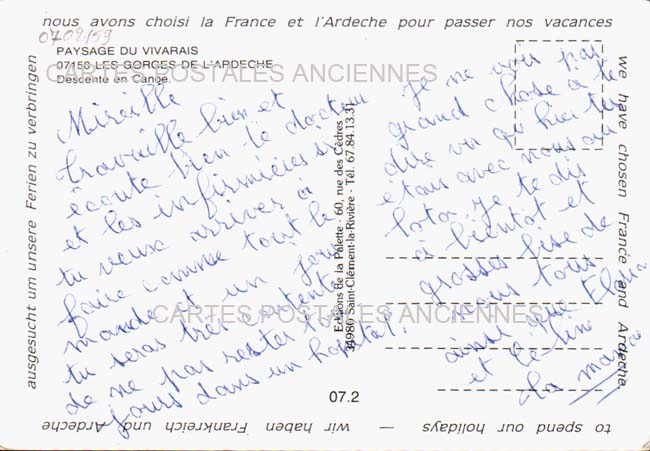 nous avons choisi la France et l'Ardeche pour passer nos vacances
0702159
PAYSAGE DU VIVARAIS
07150 LES GORGES DE L'ARDECHE
Descente en Canoë.
CARTES POSTALES ANCIENNES
Mireille
travaille bien et
écoute bien le docteur
et les infirmières si
tu veux arriver à
faire comme tout le
monde et un jour
tu seras très contente
de ne pas rester tou
jours dans un hopital.
Editions de la Palette - 60, rue des Cèdres
34980 Saint-Clément-la-Rivière - Tél. 67.84.13.31
Je ne avais pas
grand chose à te
dire vu qu'hier tu
étais avec nous au
loto. Je te dis
à bientot et
grosses bise de
nous tous
ainsi que
et
la mama
CARTES POSTALES ANCIENNES
07.2
we have chosen France and Ardeche
to spend our holidays
— wir haben Frankreich und Ardeche
ausgesucht um unsere Ferien zu verbringen